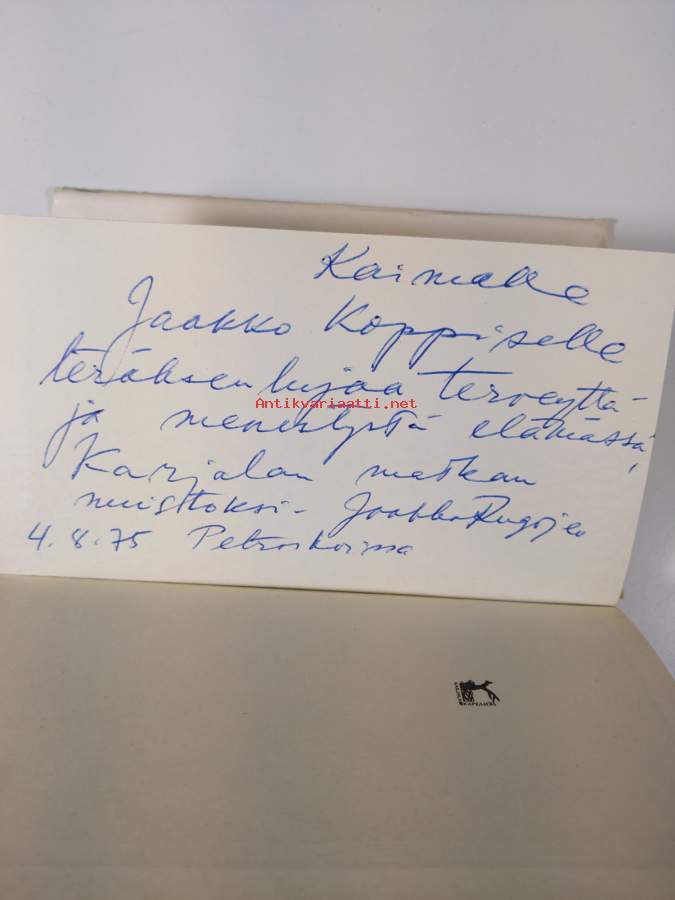 Kaimalle
Jaakko Koppiselle
teräksenlujaa terveyttä
Antikvariaatti.net
ja menestystä elämässä,
Karjalan matkan
muistoksi - Jaakko Rugojev
4.8.75 Petroskoissa